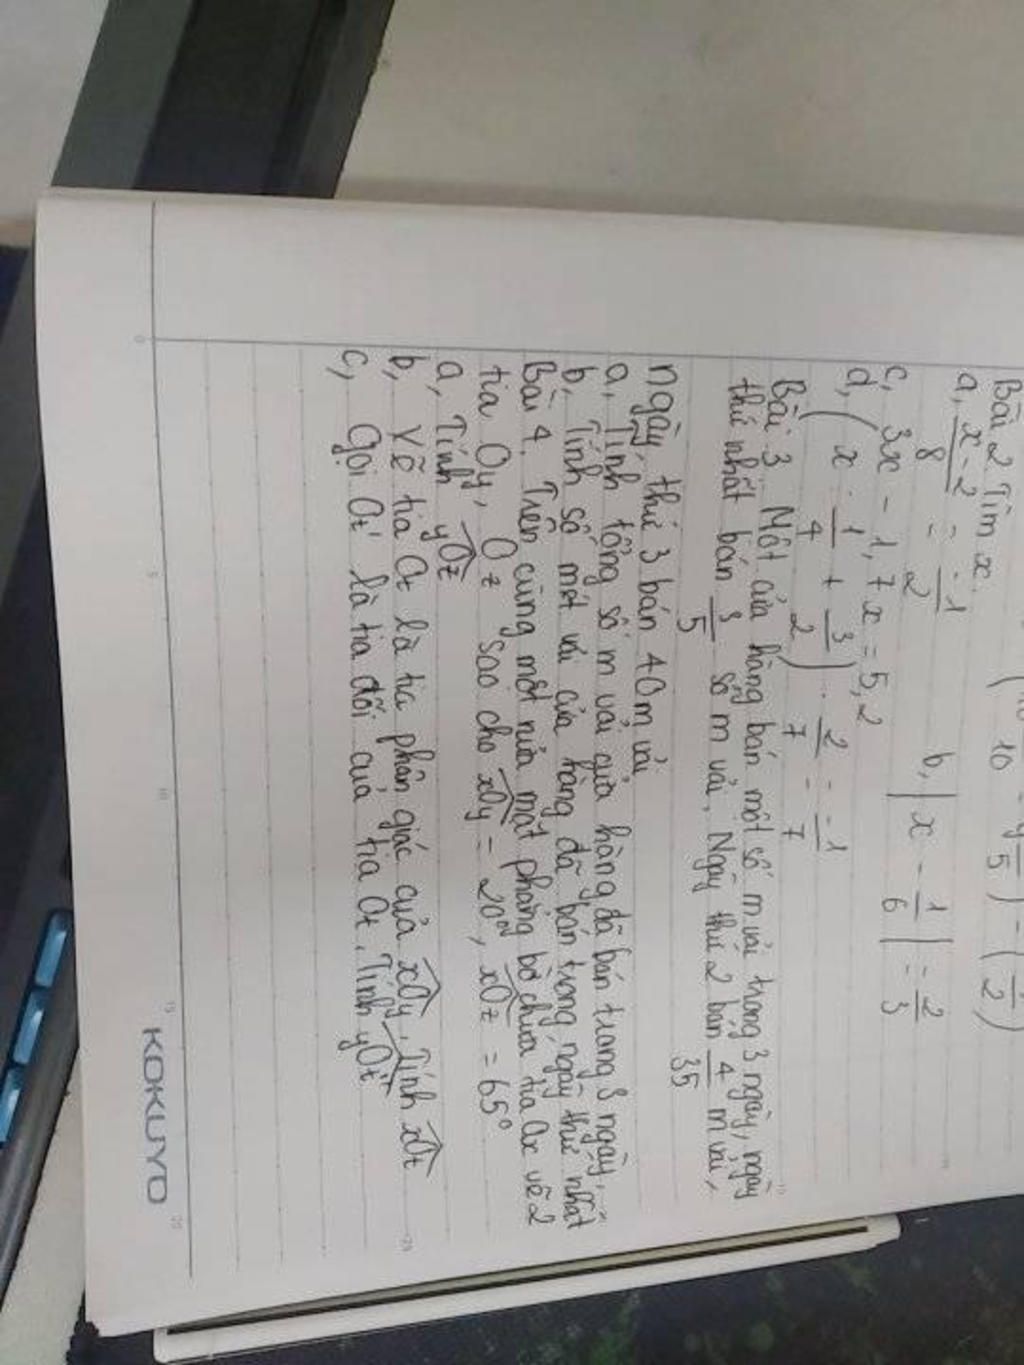 10 5 ) - ( 2 )
Bài 2 Tìm x.
a, x-2/8 = -1/2 b, |x - 1/6| = 2/3
c, 3x - 1,7x = 5,2
d, (x . 1/4 + 3/2) . 2/7 = -1/7
Bài 3 Một cửa hàng bán một số m vải trong 3 ngày, ngày
thứ nhất bán 3/5 số m vải, Ngày thứ 2 bán 4/35 m vải,
ngày thứ 3 bán 40m vải
a, Tính tổng số m vải cửa hàng đã bán trong 3 ngày,
b, Tính số mét vải cửa hàng đã bán trong ngày thứ nhất
Bài 4. Trên cùng một nửa mặt phẳng bờ chứa tia Ox vẽ 2
tia Oy, Oz sao cho xOy = 20°, xOz = 65°
a, Tính yOz
b, Vẽ tia Ot là tia phân giác của xOy, Tính xOt
c, Gọi Ot' là tia đối của tia Ot. Tính yOt'
KOKUYO